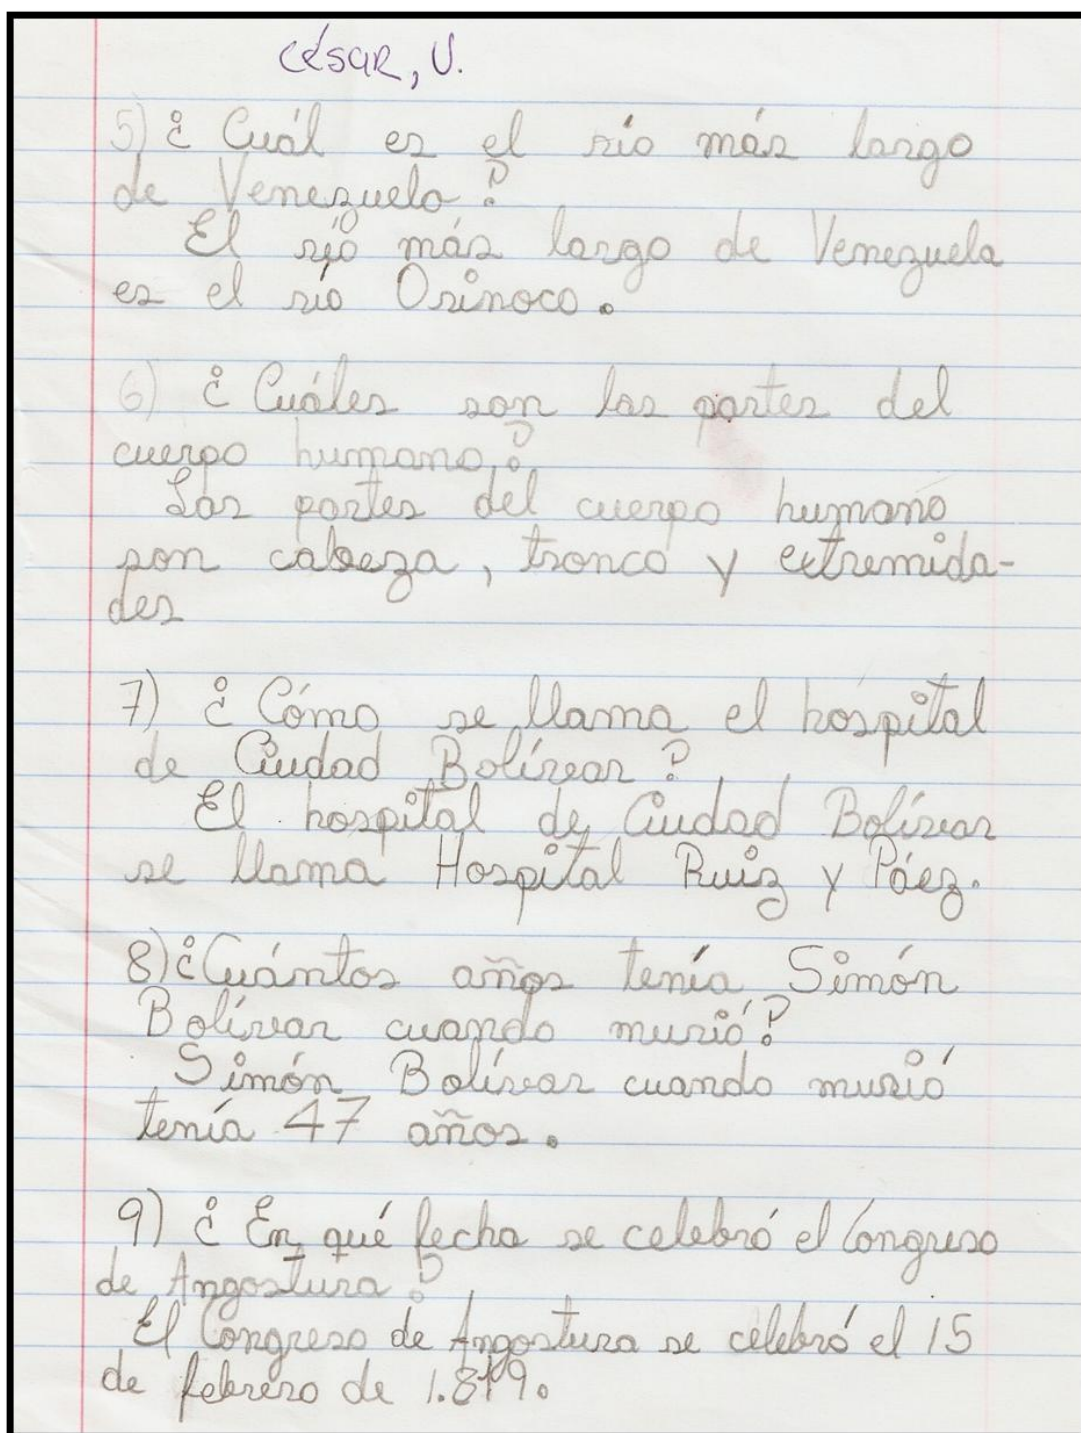 César, U.
5) ¿Cuál es el río más largo
de Venezuela?
El río más largo de Venezuela
es el río Orinoco.
6) ¿Cuáles son las partes del
cuerpo humano?
Las partes del cuerpo humano
son cabeza, tronco y extremida-
des
7) ¿Cómo se llama el hospital
de Ciudad Bolívar?
El hospital de Ciudad Bolívar
se llama Hospital Ruiz y Páez.
8) ¿Cuántos años tenía Simón
Bolívar cuando murió?
Simón Bolívar cuando murió
tenía 47 años.
9) ¿En qué fecha se celebró el Congreso
de Angostura?
El Congreso de Angostura se celebró el 15
de febrero de 1.819.